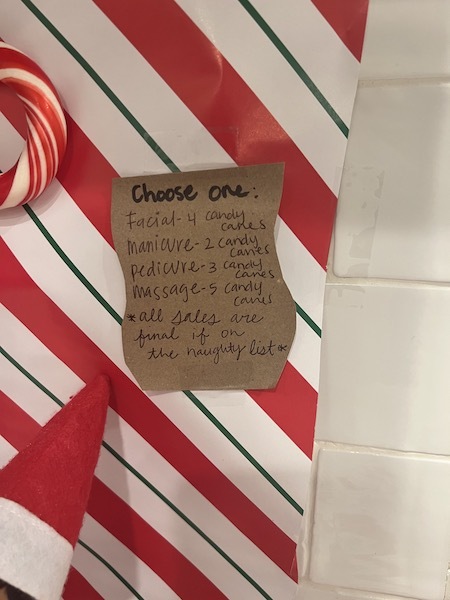 Choose one:
Facial - 4 candy
canes
manicure - 2 candy
canes
pedicure - 3 candy
canes
massage - 5 candy
canes
*all sales are
final if on
the naughty list*